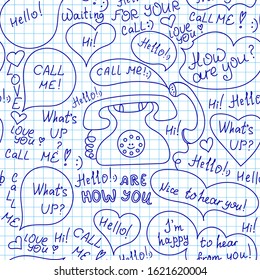 Hello!
Waiting
FOR YOUR
CALL:)
CALL ME!
Hi!
Hello!,
How are
you?
CALL
ME!
CALL ME!:)
Love
you?
What's
UP?
Hello!:)
Hello!,
Hi!
What's
UP?
Hello!
Love
you?
CALL
ME!
Hello!:)
ARE
HOW YOU
Hello!:)
What's
UP?
CALL
ME!
Nice to hear you!
Hello!
Hi!
CALL
ME!
Love
you?
Hi!
Hello!
I'm
happy
to hear
from you!
Hi!
shutterstock.com · 1621620004